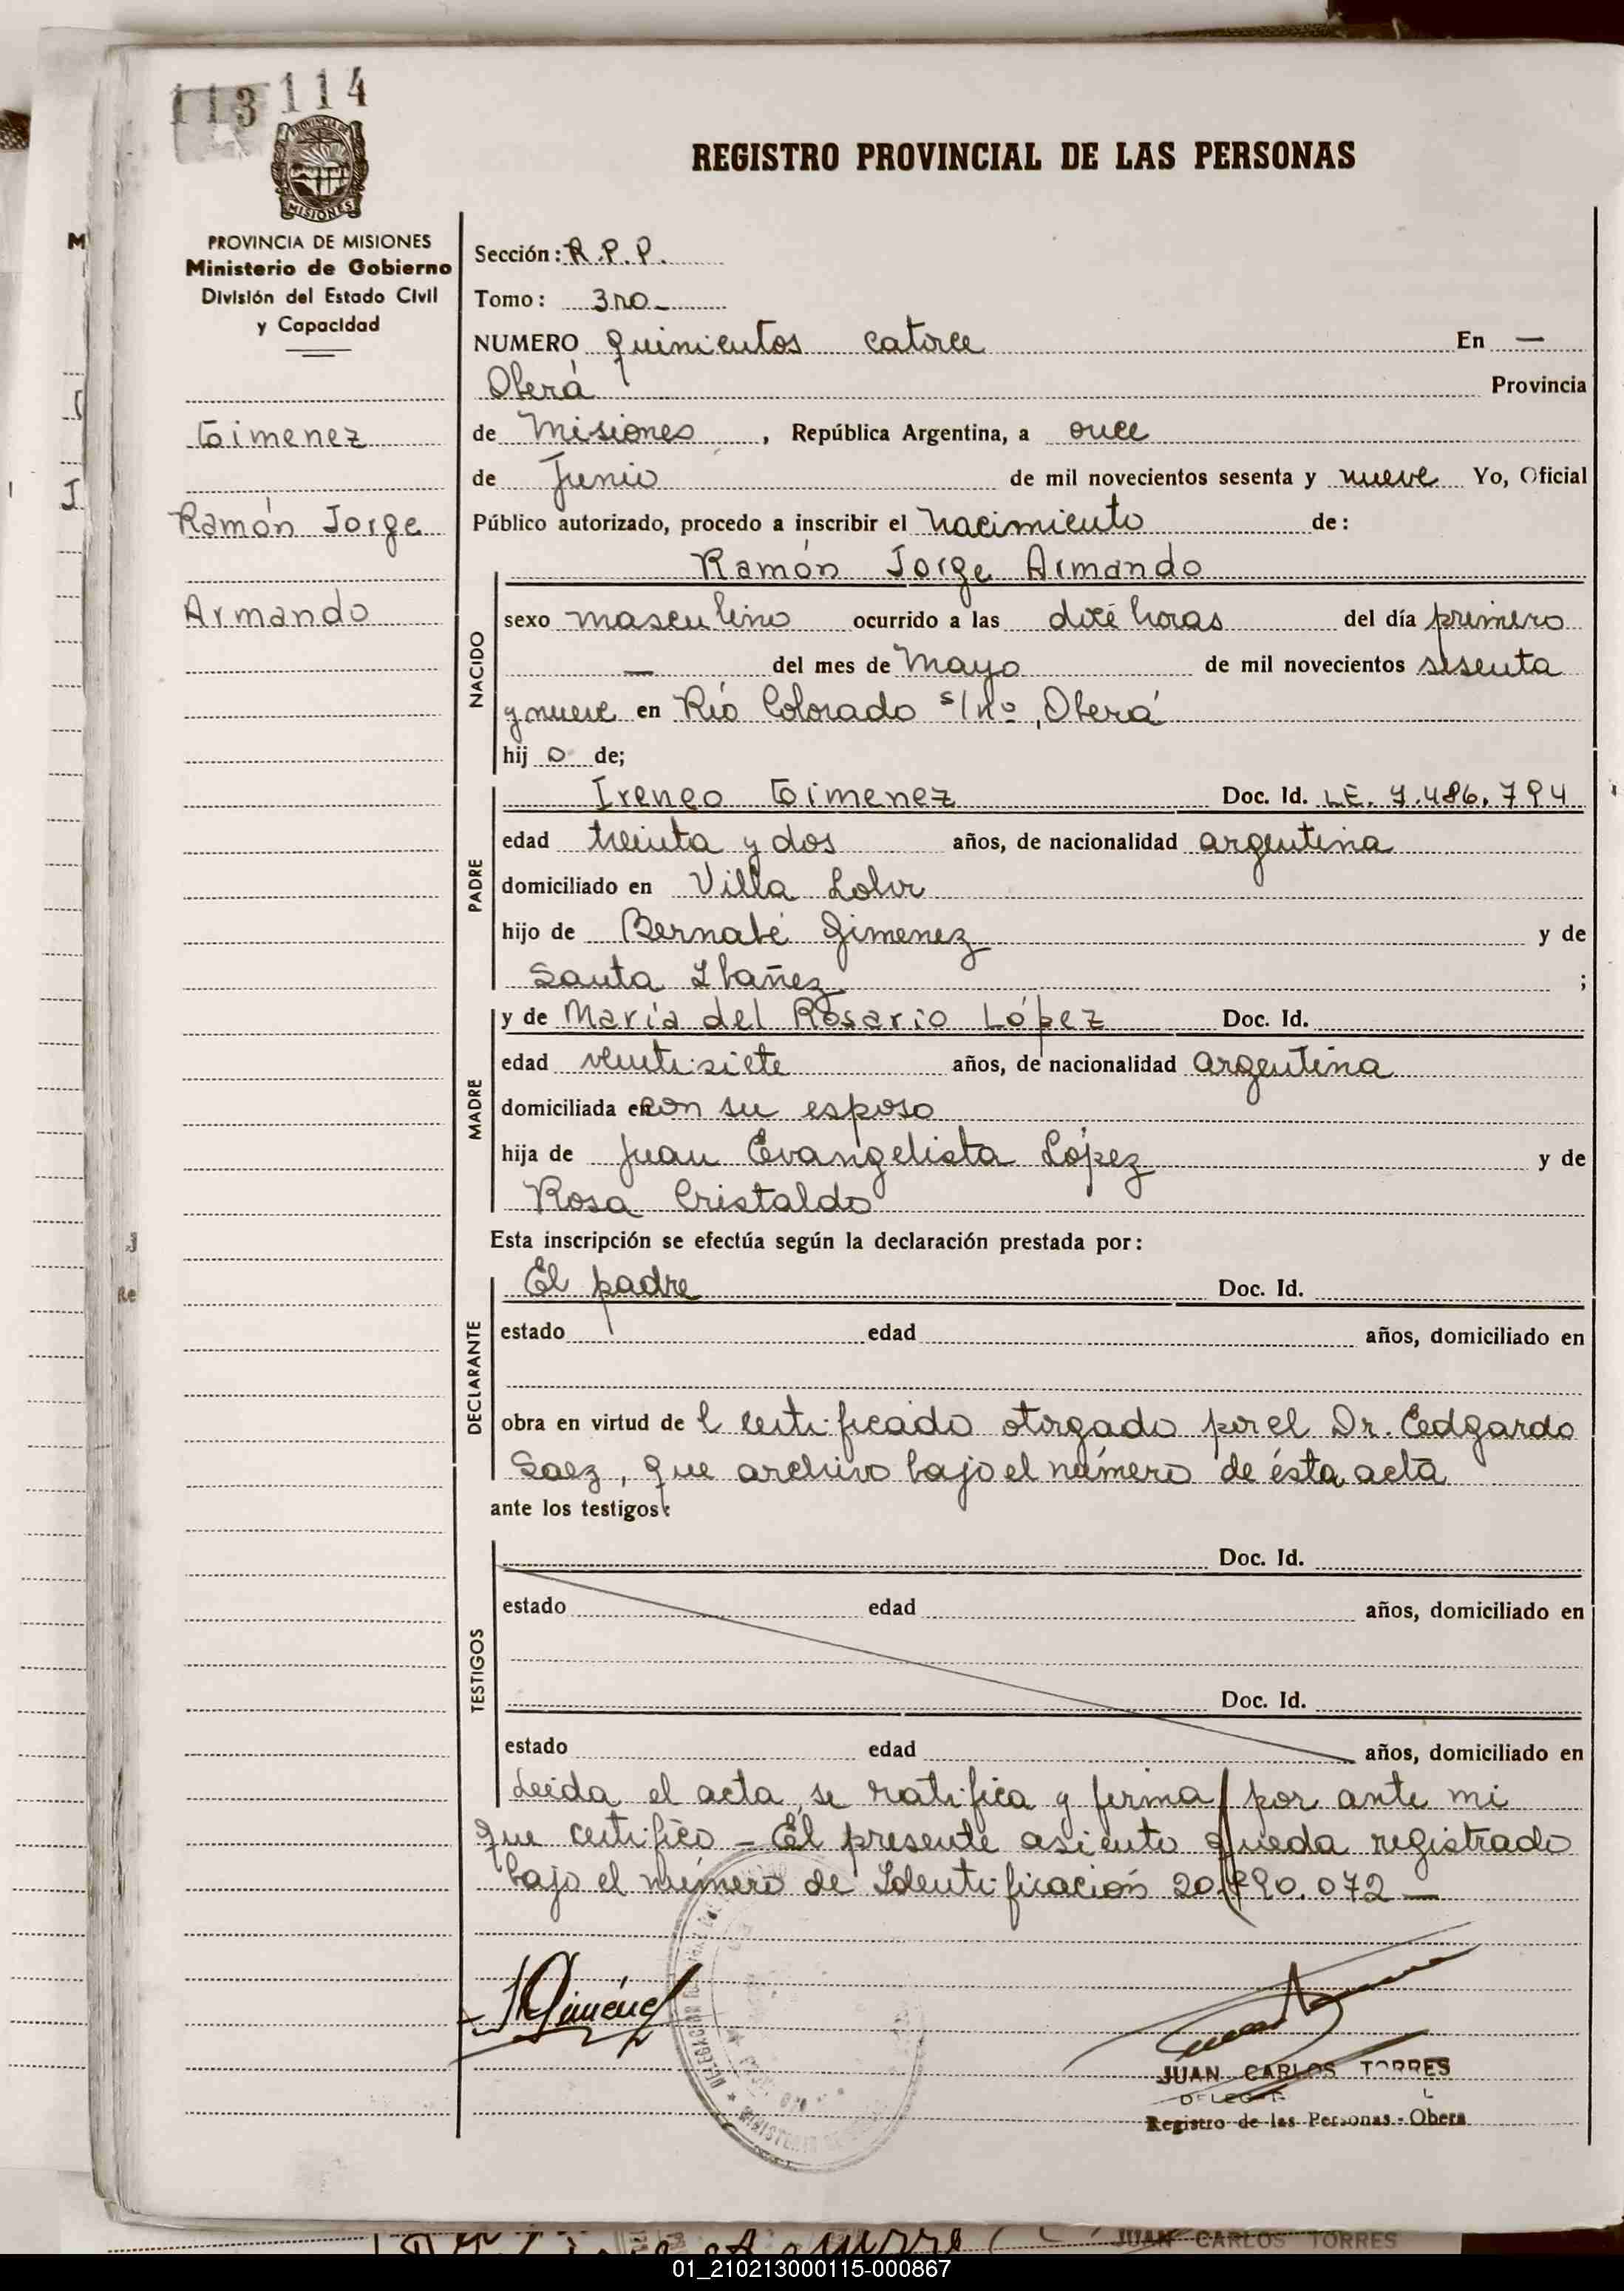 113 114
PROVINCIA DE
MISIONES
REGISTRO PROVINCIAL DE LAS PERSONAS
PROVINCIA DE MISIONES
Ministerio de Gobierno
División del Estado Civil
y Capacidad
Gimenez
Ramón Jorge
Armando
Sección: R.P.P.
Tomo: 3ro-
NUMERO quinientos catorce En —
Oberá Provincia
de Misiones, República Argentina, a once
de Junio de mil novecientos sesenta y nueve Yo, Oficial
Público autorizado, procedo a inscribir el nacimiento de:
Ramón Jorge Armando
NACIDO
sexo masculino ocurrido a las horas del día primero
— del mes de Mayo de mil novecientos sesenta
y nueve en Río Colorado s/nº, Oberá
hij o de;
PADRE
Ireneo Gimenez Doc. Id. LE. 7.486.794
edad treinta y dos años, de nacionalidad argentina
domiciliado en Villa
hijo de Bernabé Gimenez y de
Santa Ibañez ;
MADRE
y de María del Rosario López Doc. Id.
edad veintisiete años, de nacionalidad argentina
domiciliada en con su esposo
hija de Juan Evangelista López y de
Rosa Cristaldo
Esta inscripción se efectúa según la declaración prestada por:
DECLARANTE
El padre Doc. Id.
estado edad años, domiciliado en
obra en virtud de l certificado otorgado por el Dr. Eedgardo
Saez, que archivo bajo el número de ésta acta
ante los testigos:
TESTIGOS
Doc. Id.
estado edad años, domiciliado en
Doc. Id.
estado edad años, domiciliado en
Leida el acta se ratifica y firma por ante mi
que certifico - El presente asiento queda registrado
bajo el número de Identificación 20.790.072 —
Giménez
JUAN CARLOS TORRES
Registro de las Personas - Obera
JUAN CARLOS TORRES
01_210213000115-000867